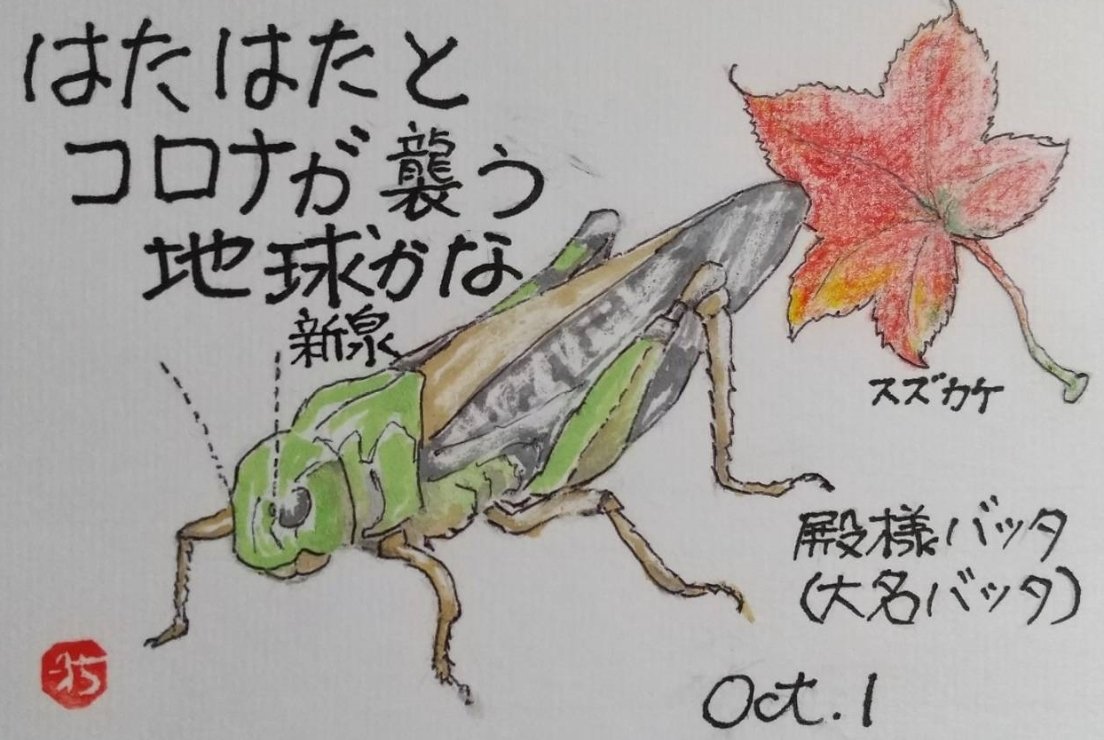 はたはたと
コロナが襲う
地球かな
新泉
スズカケ
殿様バッタ
(大名バッタ)
Oct. 1